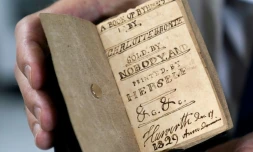 A BOOK OF RYHMES
BY
CHARLOTTE BRONTE
SOLD BY
NOBODY AND
PRINTED BY
HERSELF
&c. &c.
Haworth Dec 17
1829 Anno Domini